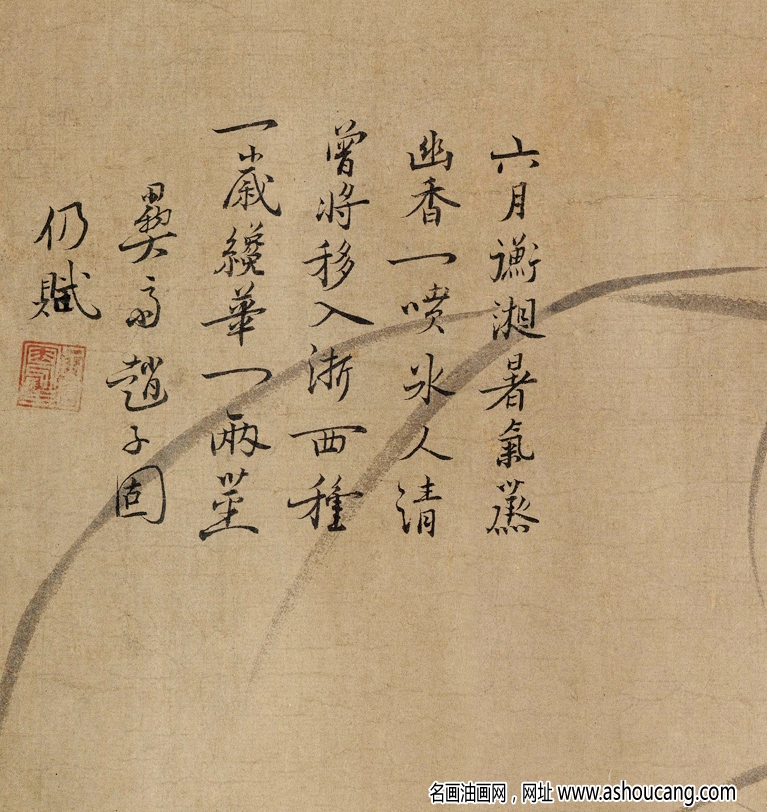 六月衡湘暑氣蒸
幽香一噴冰人清
曾將移入浙西種
一歲纔華一兩莖
彝齋趙子固
仍賦
名画油画网，网址 www.ashoucang.com